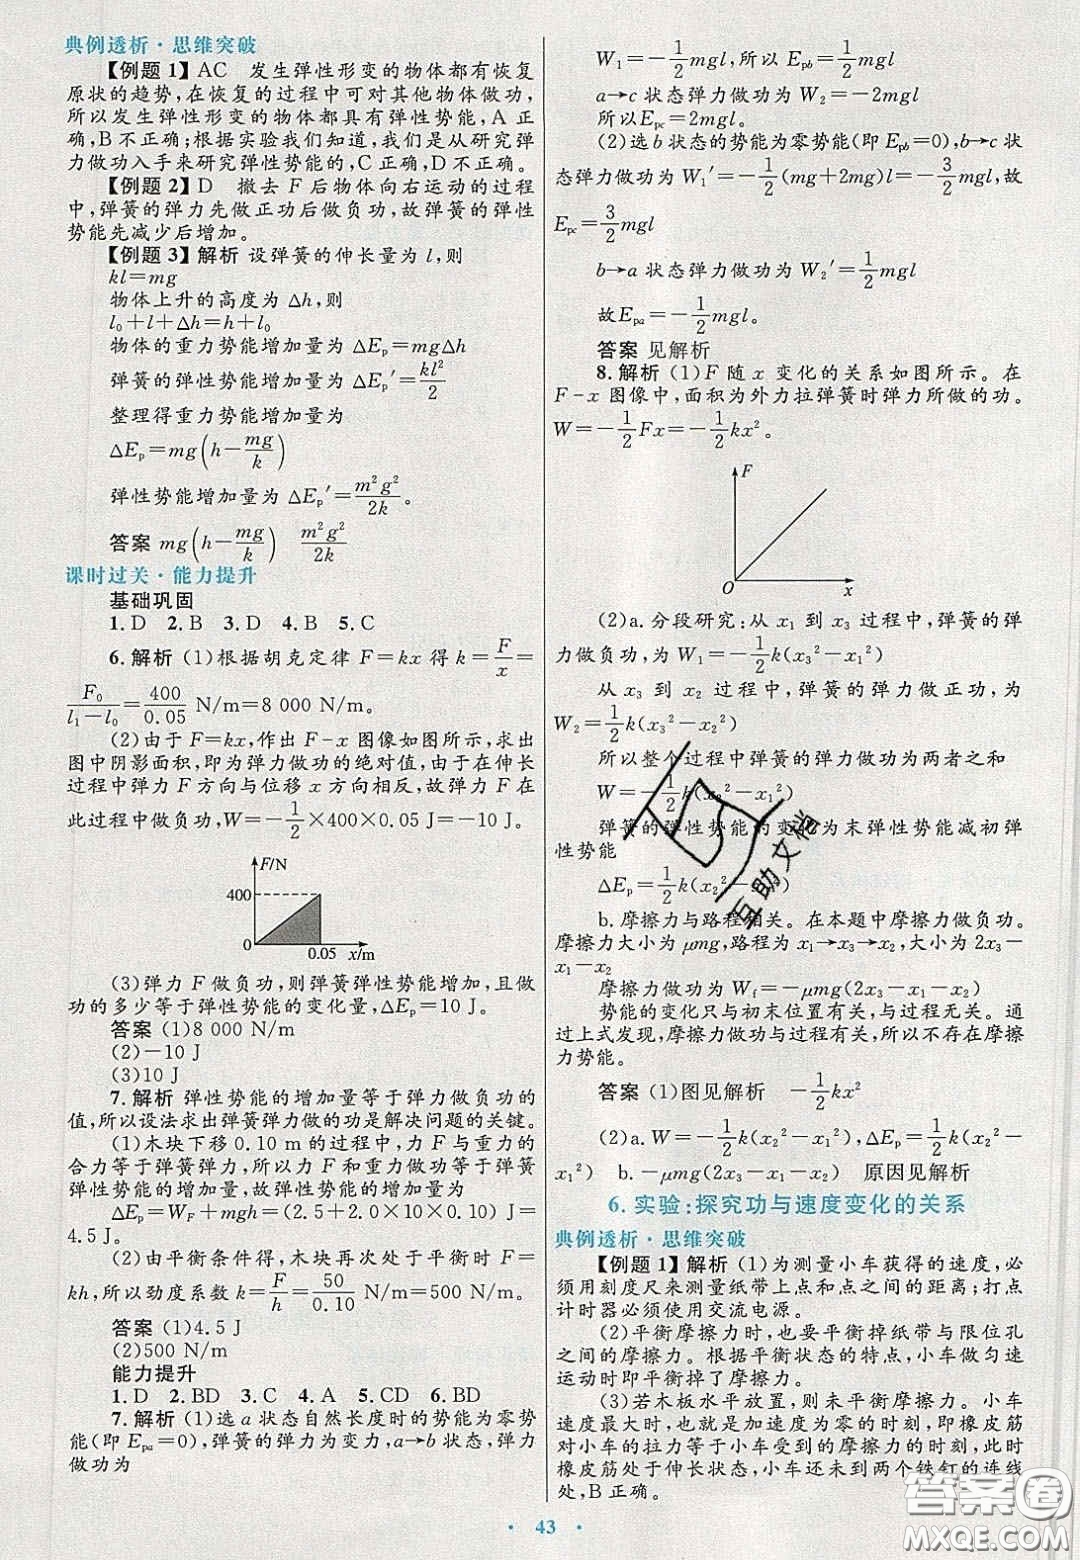 典例透析·思维突破
【例题1】AC　发生弹性形变的物体都有恢复
原状的趋势,在恢复的过程中可对其他物体做功,
所以发生弹性形变的物体都具有弹性势能,A正
确,B不正确;根据实验我们知道,我们是从研究弹
力做功入手来研究弹性势能的,C正确,D不正确。
【例题2】D　撤去F后物体向右运动的过程
中,弹簧的弹力先做正功后做负功,故弹簧的弹性
势能先减少后增加。
【例题3】解析 设弹簧的伸长量为l,则
kl=mg
物体上升的高度为Δh,则
l₀+l+Δh=h+l₀
物体的重力势能增加量为ΔEₚ=mgΔh
弹簧的弹性势能增加量为ΔEₚ′=kl²/2
整理得重力势能增加量为
ΔEₚ=mg(h-mg/k)
弹性势能增加量为ΔEₚ′=m²g²/2k。
答案 mg(h-mg/k)　m²g²/2k
课时过关·能力提升
基础巩固
1.D　2.B　3.D　4.B　5.C
6.解析 (1)根据胡克定律F=kx得k=F/x=
F₀/(l₁-l₀)=400/0.05 N/m=8 000 N/m。
(2)由于F=kx,作出F-x图像如图所示,求出
图中阴影面积,即为弹力做功的绝对值,由于在伸长
过程中弹力F方向与位移x方向相反,故弹力F在
此过程中做负功,W=-1/2×400×0.05 J=-10 J。
F/N
400
0
0.05
x/m
(3)弹力F做负功,则弹簧弹性势能增加,且做
功的多少等于弹性势能的变化量,ΔEₚ=10 J。
答案 (1)8 000 N/m
(2)-10 J
(3)10 J
7.解析 弹性势能的增加量等于弹力做负功的
值,所以设法求出弹簧弹力做的功是解决问题的关键。
(1)木块下移0.10 m的过程中,力F与重力的
合力等于弹簧弹力,所以力F和重力做功等于弹簧
弹性势能的增加量,故弹性势能的增加量为
ΔEₚ=W_F+mgh=(2.5+2.0×10×0.10) J=
4.5 J。
(2)由平衡条件得,木块再次处于平衡时F=
kh,所以劲度系数k=F/h=50/0.10 N/m=500 N/m。
答案 (1)4.5 J
(2)500 N/m
能力提升
1.D　2.BD　3.C　4.A　5.CD　6.BD
7.解析 (1)选a状态自然长度时的势能为零势
能(即Eₚₐ=0),弹簧的弹力为变力,a→b状态,弹力
做功为
W₁=-1/2mgl,所以E_pb=1/2mgl
a→c状态弹力做功为W₂=-2mgl
所以E_pc=2mgl。
(2)选b状态的势能为零势能(即E_pb=0),b→c状
态弹力做功为W₁′=-1/2(mg+2mg)l=-3/2mgl,故
E_pc=3/2mgl
b→a状态弹力做功为W₂′=1/2mgl
故Eₚₐ=-1/2mgl。
答案 见解析
8.解析 (1)F随x变化的关系如图所示。在
F-x图像中,面积为外力拉弹簧时弹力所做的功。
W=-1/2Fx=-1/2kx²。
F
O
x
(2)a.分段研究:从x₁到x₃过程中,弹簧的弹
力做负功,为W₁=-1/2k(x₃²-x₁²)
从x₃到x₂过程中,弹簧的弹力做正功,为
W₂=1/2k(x₃²-x₂²)
所以整个过程中弹簧的弹力做功为两者之和
W=-1/2k(x₂²-x₁²)
弹簧的弹性势能的变化为末弹性势能减初弹
性势能
ΔEₚ=1/2k(x₂²-x₁²)
b.摩擦力与路程相关。在本题中摩擦力做负功。
摩擦力大小为μmg,路程为x₁→x₃→x₂,大小为2x₃-
x₁-x₂
摩擦力做功为W_f=-μmg(2x₃-x₁-x₂)
势能的变化只与初末位置有关,与过程无关。通
过上式发现,摩擦力做功与过程有关,所以不存在摩擦
力势能。
答案 (1)图见解析　-1/2kx²
(2)a.W=-1/2k(x₂²-x₁²),ΔEₚ=1/2k(x₂²-
x₁²)　b.-μmg(2x₃-x₁-x₂)　原因见解析
6.实验:探究功与速度变化的关系
典例透析·思维突破
【例题1】解析 (1)为测量小车获得的速度,必
须用刻度尺来测量纸带上点和点之间的距离;打点
计时器必须使用交流电源。
(2)平衡摩擦力时,也要平衡掉纸带与限位孔
之间的摩擦力。根据平衡状态的特点,小车做匀速
运动时即平衡掉了摩擦力。
(3)若木板水平放置,则未平衡摩擦力。小车
速度最大时,也就是加速度为零的时刻,即橡皮筋
对小车的拉力等于小车受到的摩擦力的时刻,此时
橡皮筋处于伸长状态,小车还未到两个铁钉的连线
处,B正确。
互助文档
答案圈
MXQE.COM
· 43 ·